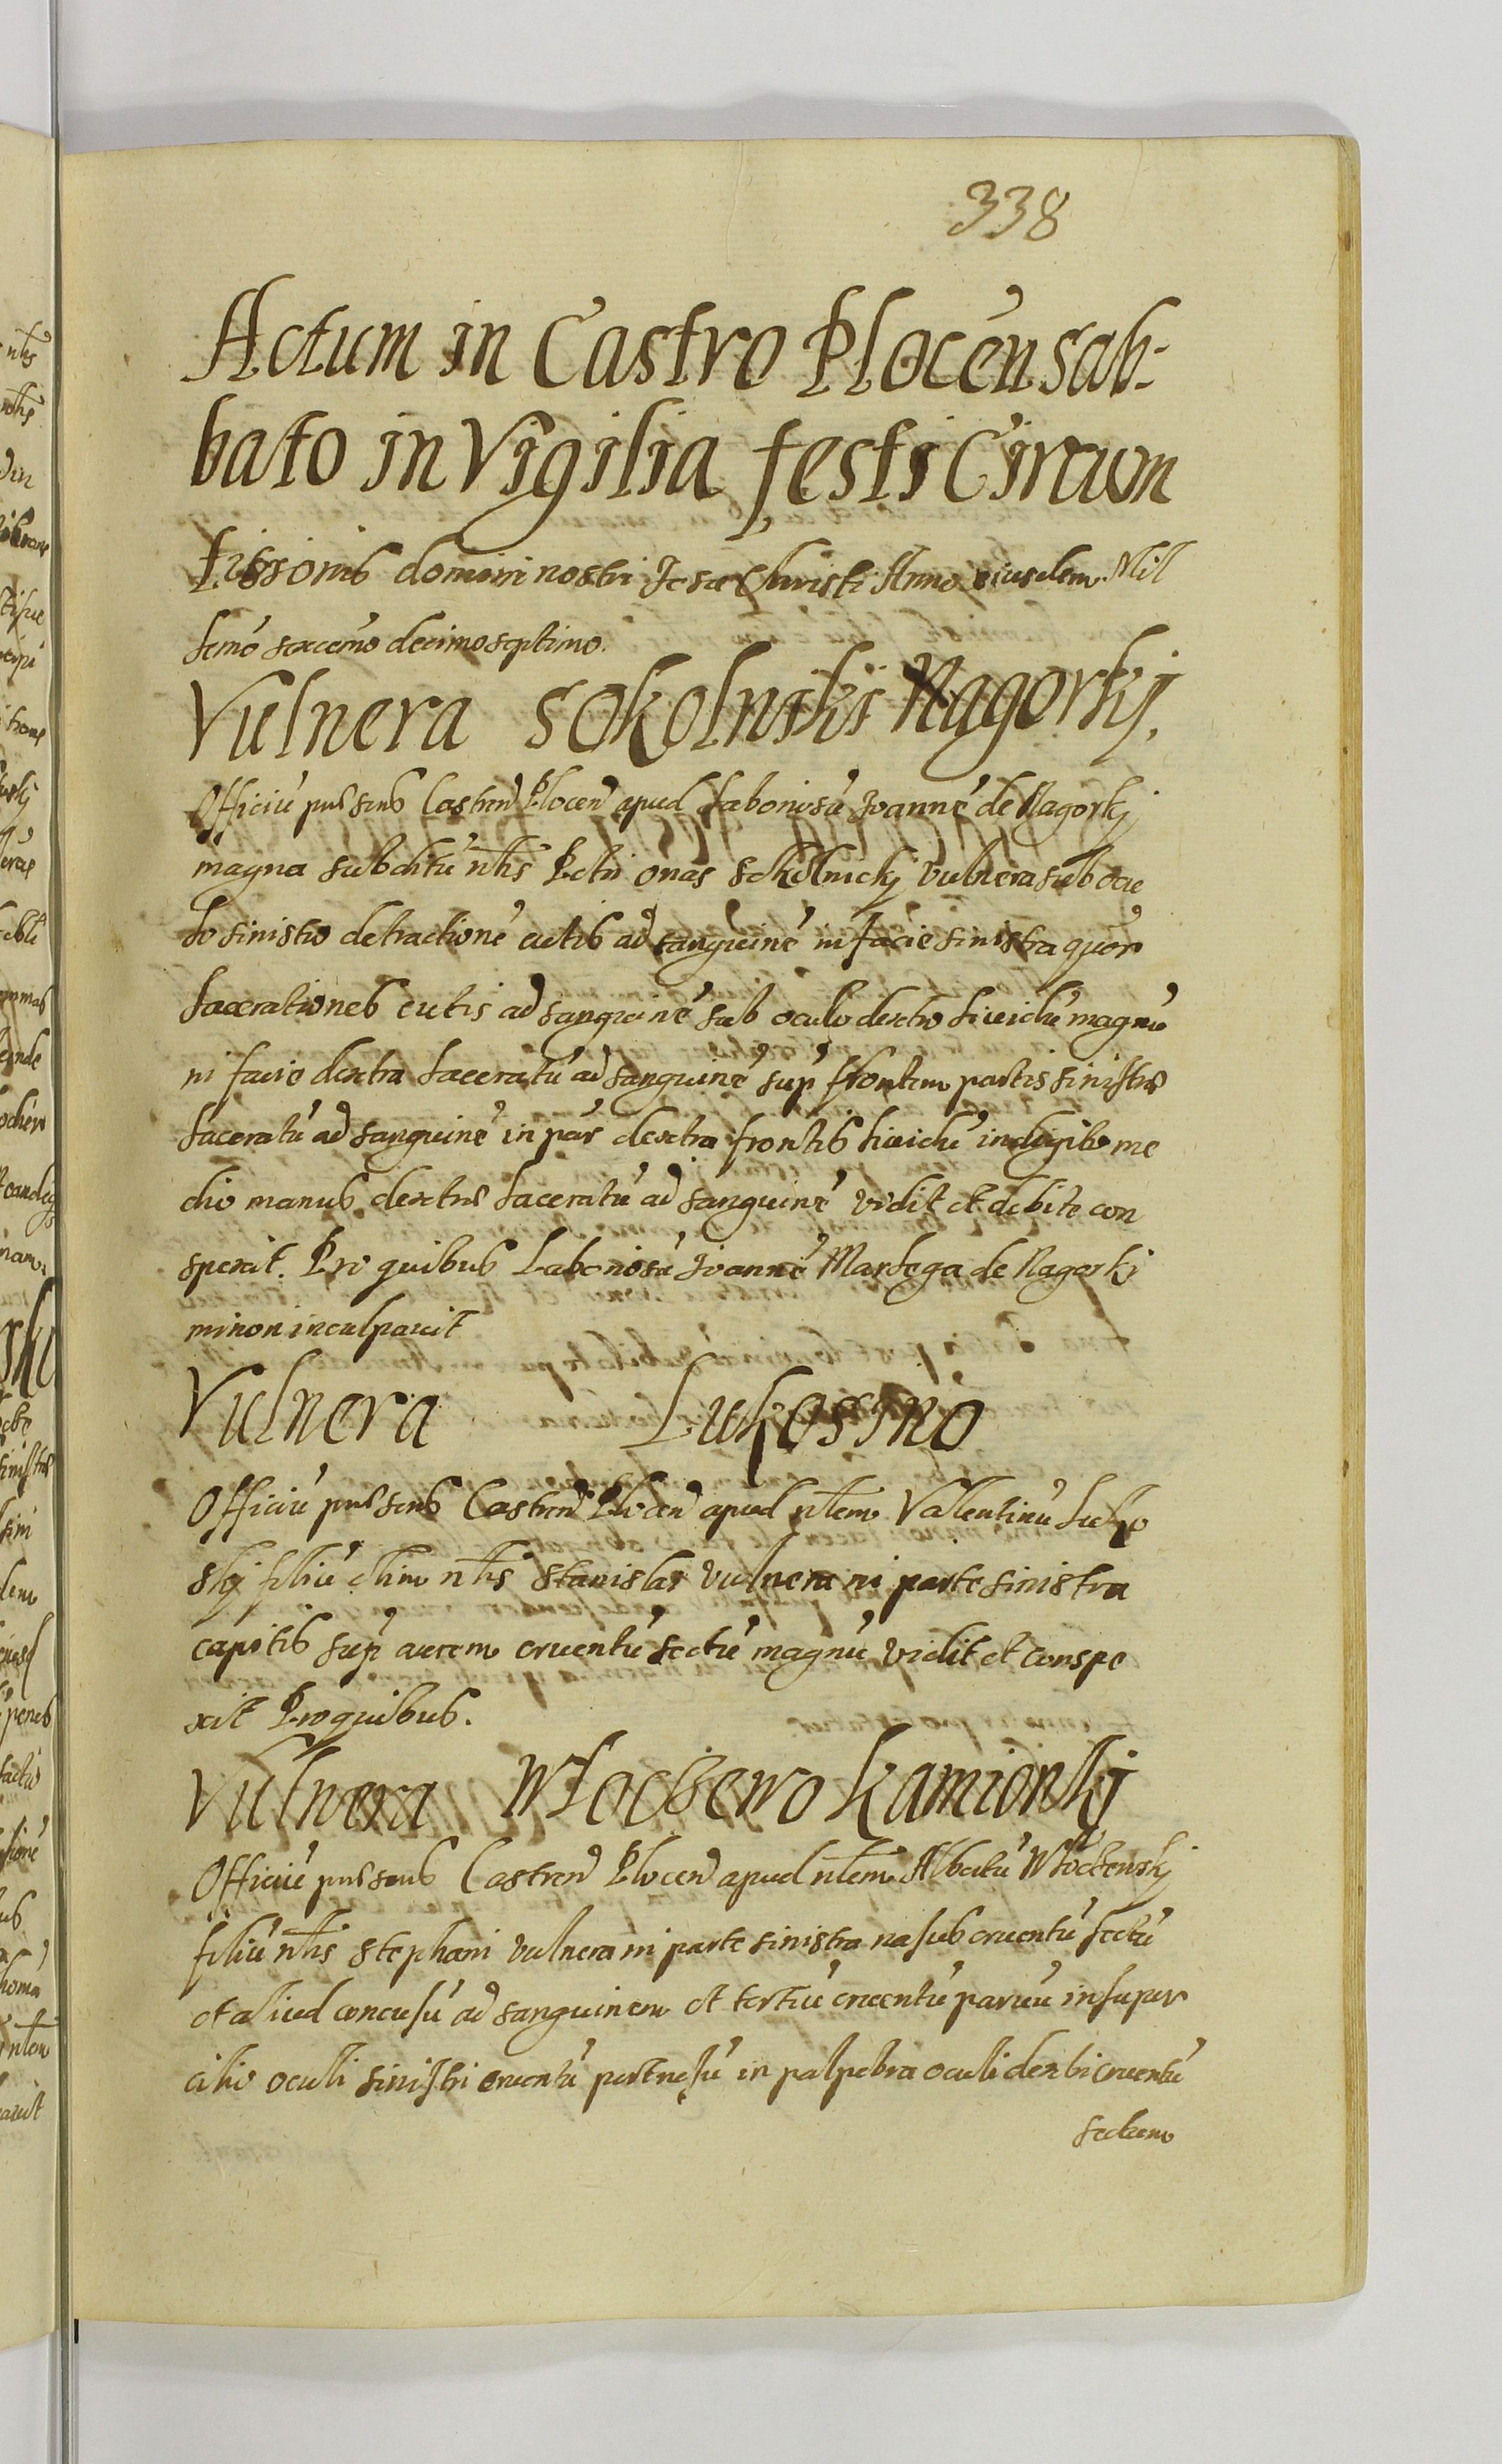 338
Actum in Castro Plocen sab-
bato in Vigilia festi Circum
cissionis domini nostri Jesu Christi Anno eiusdem Mil
lemo sexcemo decimo septimo.
Vulnera Sokolniki Nagorkj.
Officiu pnsens Castren Plocen apud Laboriosu Joanne de Nagorkj
magna subditu nlis Petri onas Sokolnickj vulnera sub ocu
lo sinistro detractione cutis ad sanguine in facie sinistra quor
lacerationes cutis ad sanguine sub oculo dextro liuidu magnu
in facie dextra laceratu ad sanguine sup frontem partis sinistre
laceratu ad sanguine in par dextra frontis liuidu in digito me
dio manus dextre laceratu ad sanguine vidit et debite con
spexit. Pro quibus Laboriosu Joanne Martega de Nagorki
minori inculpauit
Vulnera Lukossino
Officiu pnsens Castren Plocen apud nlem Valentinu Luko
skj filiu olim nlis Stanislai vulnera in parte sinistra
capitis sup aurem cruentu sectu magnu vidit et conspe
xit Pro quibus.
Vulnera Wloczewo Kamionkj
Officiu pnsens Castren Plocen apud nlem Albertu Wloczewskj
filiu nlis Stephani vulnera in parte sinistra nasus cruentu sectu
et aliud concusu ad sanguinem et tertiu cruentu paruu in super
cilio oculi sinistri cruentu in palpebra oculi dextri cruentu
sectum